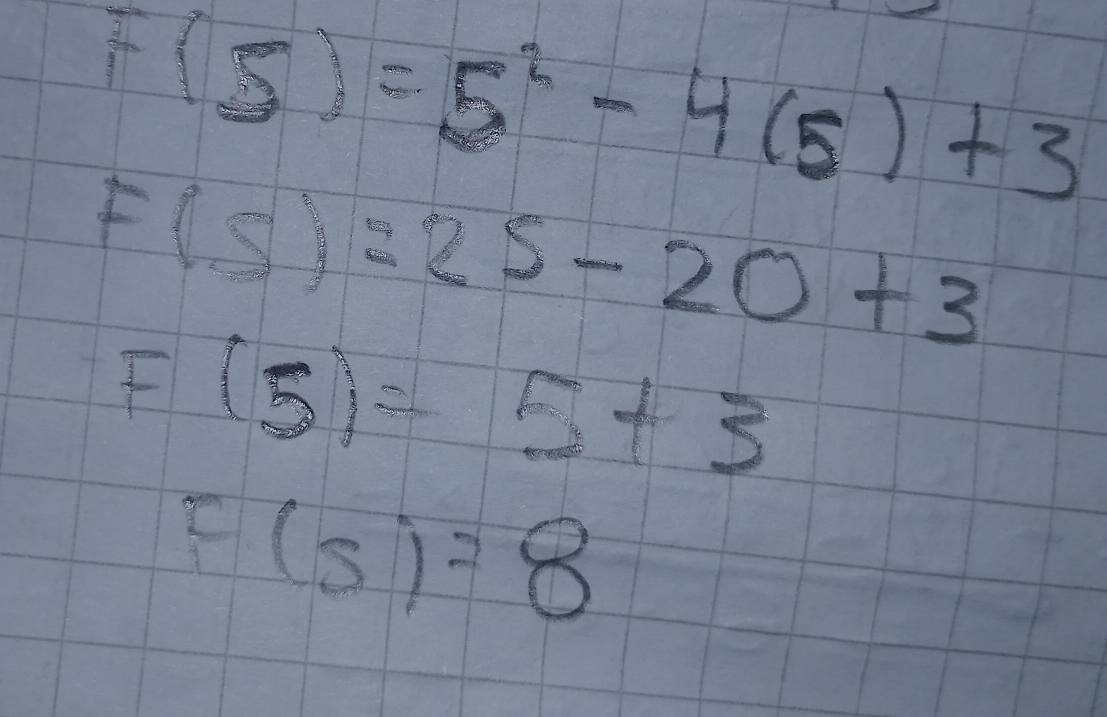 F(5) = 5² - 4(5) + 3
F(5) = 25 - 20 + 3
F(5) = 5 + 3
F(5) = 8